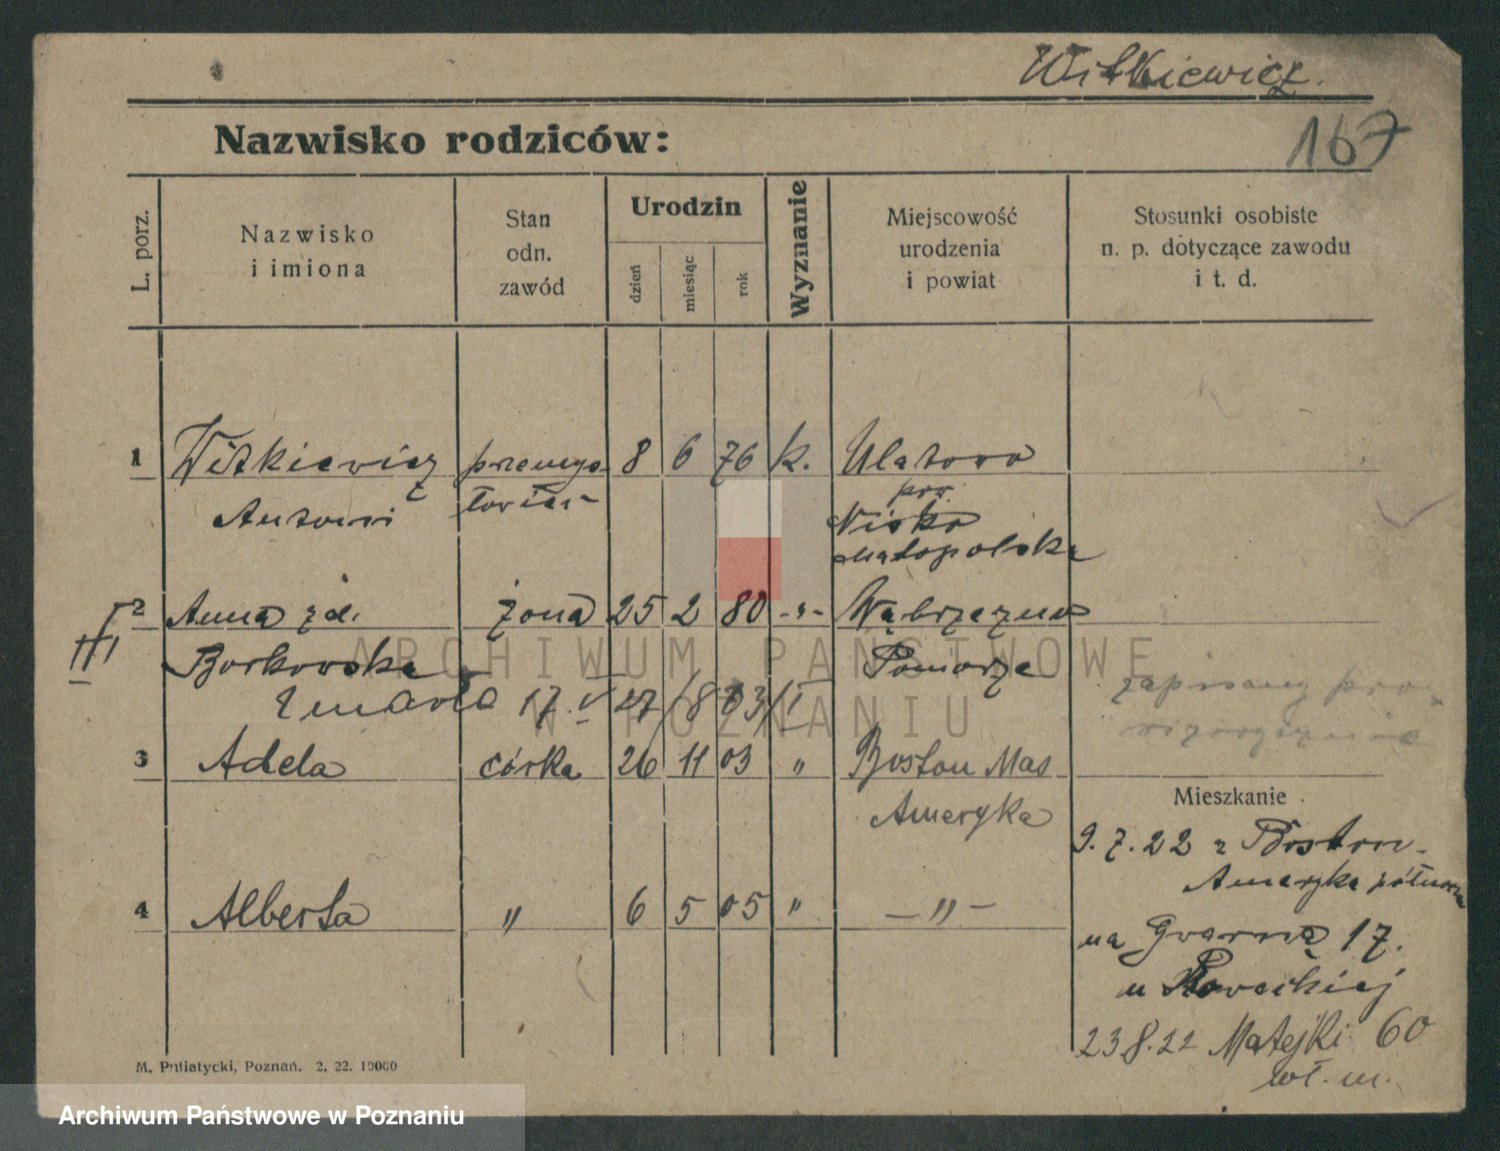 Witkiewicz.
Nazwisko rodziców:
167
L. porz.
Nazwisko
i imiona
Stan
odn.
zawód
Urodzin
dzień
miesiąc
rok
Wyznanie
Miejscowość
urodzenia
i powiat
Stosunki osobiste
n. p. dotyczące zawodu
i t. d.
1 Witkiewicz przemys- 8 6 76 k. Ulanowo
Antoni łowiec pow.
Nisko
Małopolska
2 Anna zd. żona 25 2 80 -"- Wąbrzeźno
III
Borkowska Pomorze
zmarła 17. V 27
3 Adela córka 26 11 03 " Boston Mas
Ameryka
zapisany pro-
wizorycznie
Mieszkanie
9. 7. 22 z Boston.
Ameryka północna
4 Alberta " 6 5 05 " — " —
na Gwarną 17.
u
23 8. 22 Matejki 60
wł. m.
M. Putiatycki, Poznań. 2. 22. 10000
ARCHIWUM PAŃSTWOWE
W POZNANIU
Archiwum Państwowe w Poznaniu